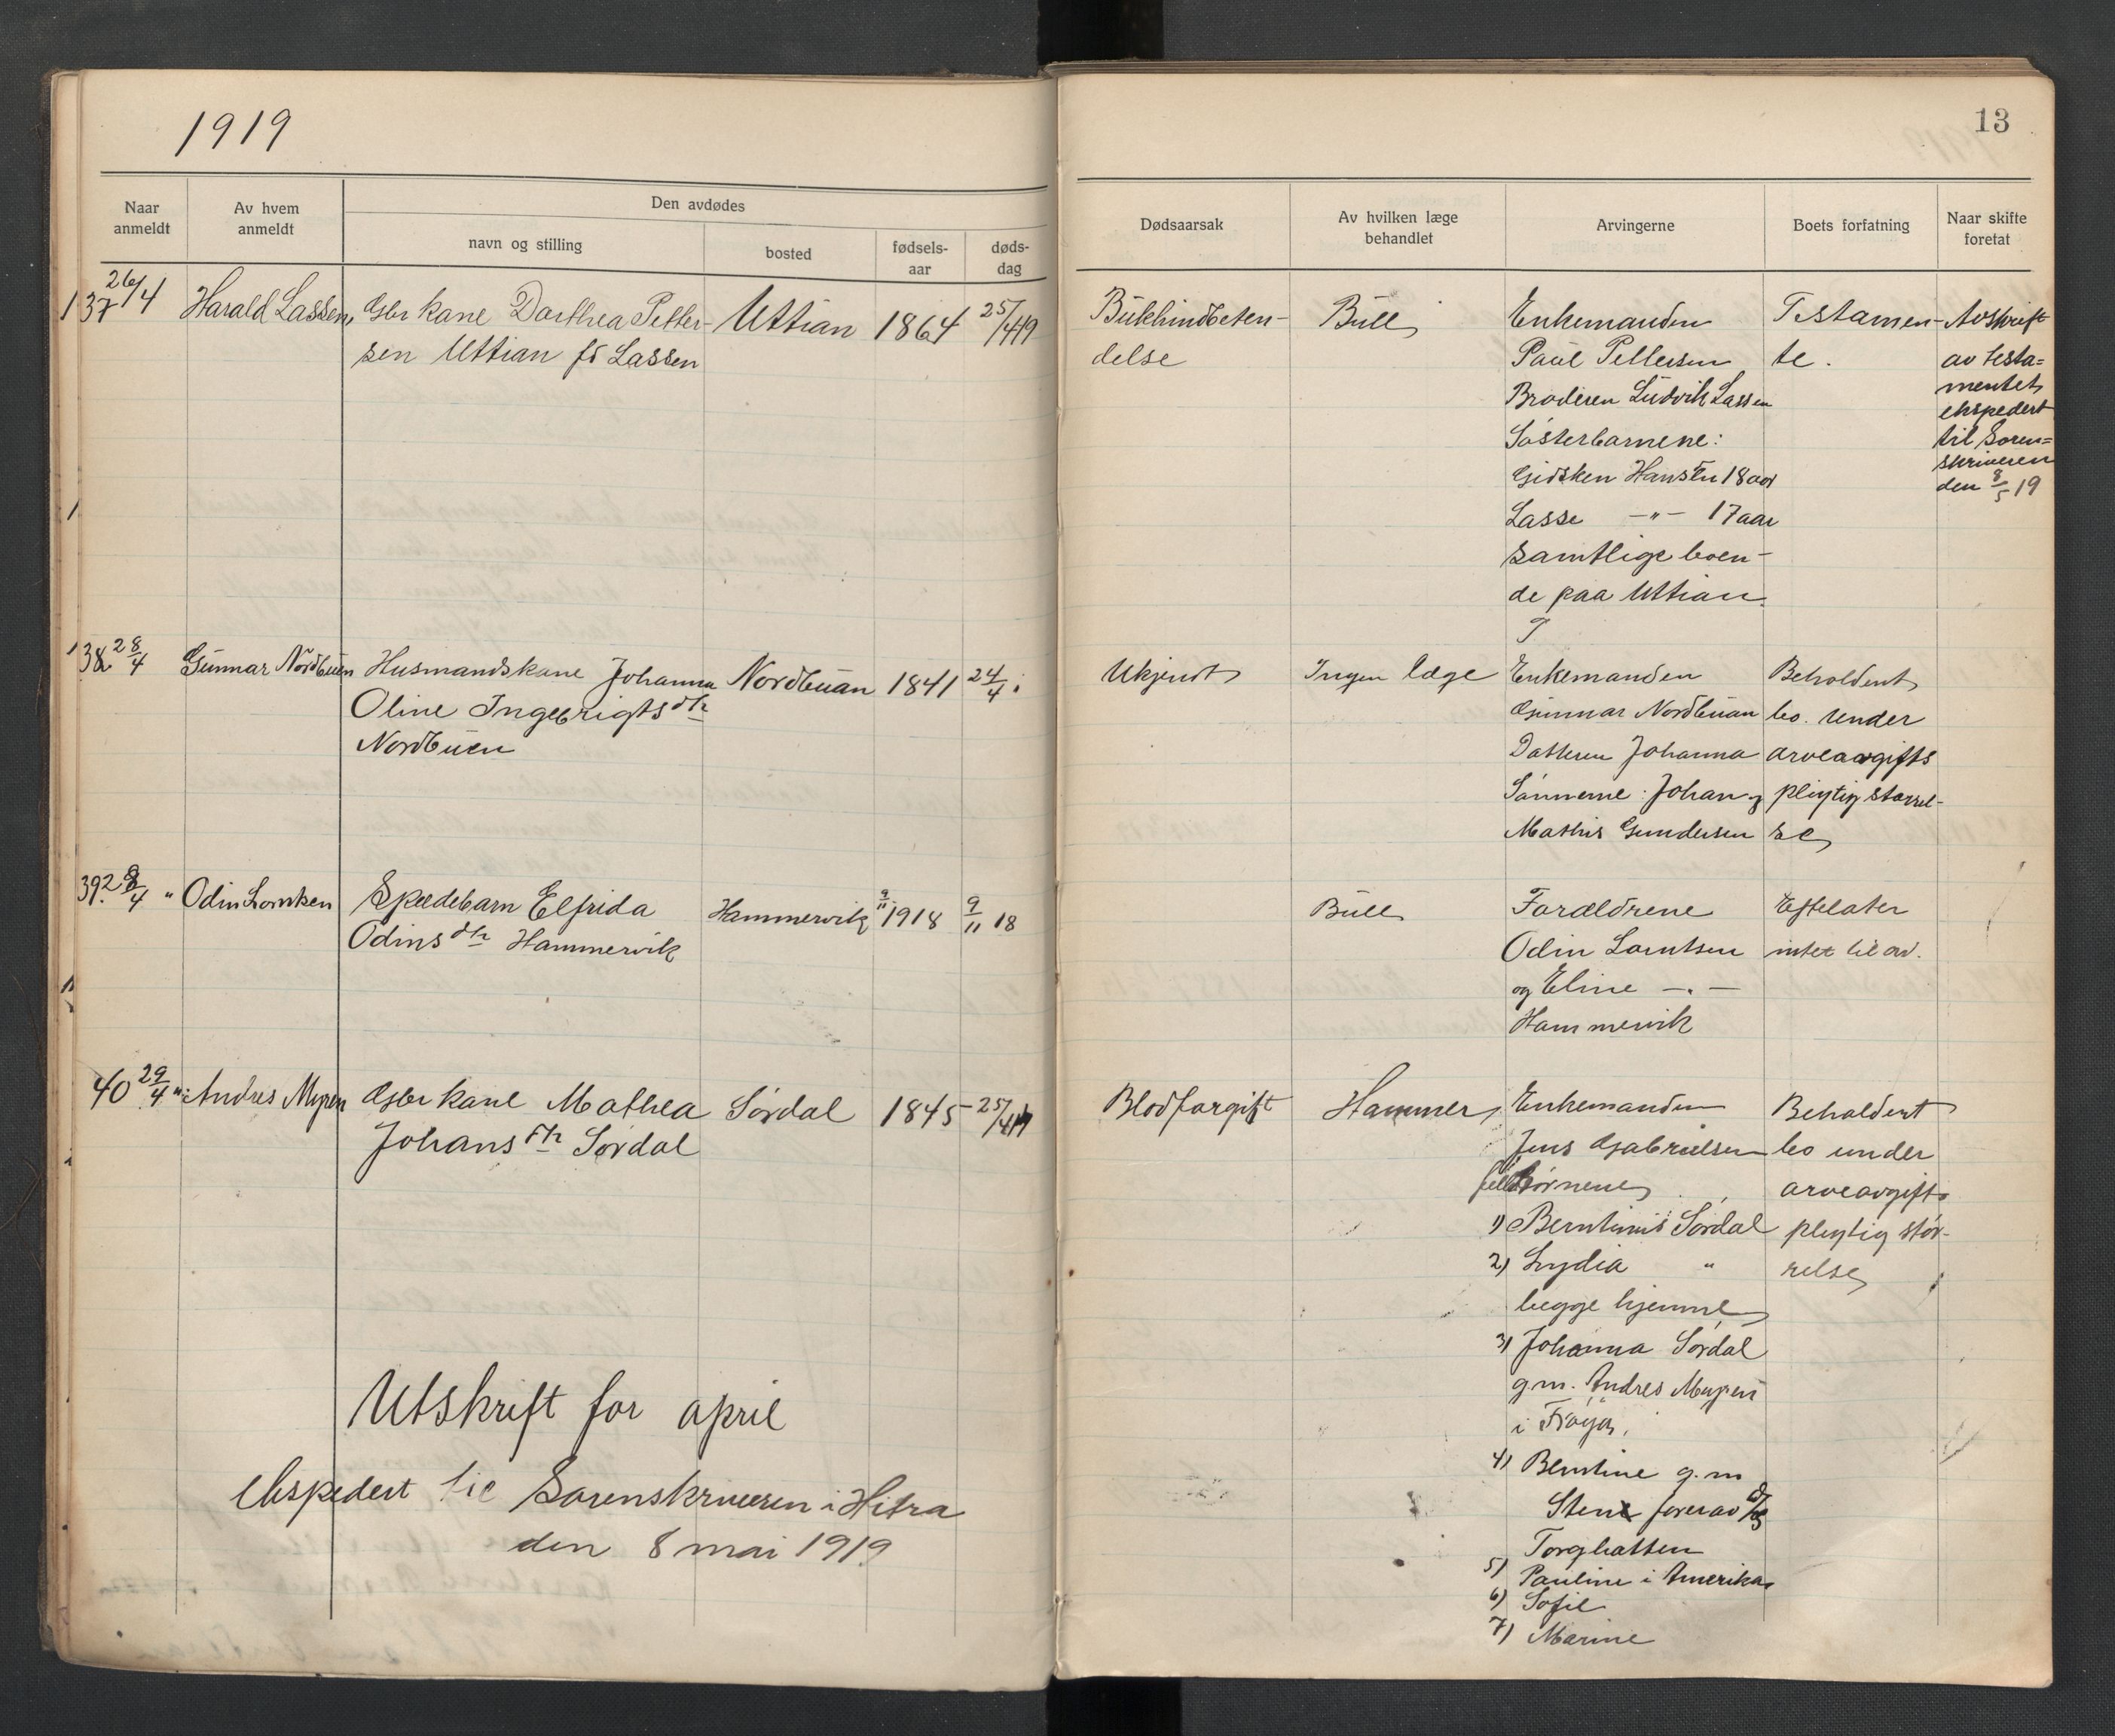 1919
13
Naar anmeldt
Av hvem anmeldt
Den avdødes
navn og stilling
bosted
fødsels-aar
døds-dag
Dødsaarsak
Av hvilken læge behandlet
Arvingerne
Boets forfatning
Naar skifte foretat
37 26/4 Harald Lassen, Gbr kone Dorthea Petter- Uttian 1864 25/4 19
sen Uttian fó Lassen
Bukhindbeten-
delse
Bull
Enkemanden
Paul Pettersen
Broderen Ludvik Lassen
Søsterbarnene:
Gidsken Hansen 18 aar
Lasse —"— 17 aar
samtlige boen-
de paa Uttian.
Testamen-
te.
Avskrift
av testa=
mentet
ekspedert
til Soren=
skriveren
den 8/5 19
38 28/4 Gunnar Nordbuen Husmandskone Johanna Nordbuan 1841 24/4
Oline Ingebrigtsdtr
Nordbuen
Ukjendt
Ingen læge
Enkemanden
Gunnar Nordbuan
Datteren Johanna
Sønnerne: Johan og
Mathis Gundersen
Beholdent
bo. under
arveavgifts
pligtig størrel-
se
39. 28/4 " Odin Lorntsen Spædebarn Elfrida Hammervik 9/11 1918 9/11 18
Odinsdtr Hammervik
Bull
Forældrene
Odin Lorntsen
og Eline —"—
Hammervik
Efterlater
intet til arv.
40 29/4 " Andres Myren Gbr kone Mathea Sørdal 1845 25/4 19
Johansdtr Sørdal
Blodforgift
Hammer
Enkemanden
Jens Gabrielsen
fællesbørnene
1) Berntinus Sørdal
2) Lydia "
begge hjemme
3) Johanna Sørdal
g.m. Andres Myren
i Frøya,
4) Berntine g.m
Sten fører av D/S
Torghatten
5) Pauline i Amerika
6) Sofie
7) Marine
Beholdent
bo under
arveavgifts
pligtig stør-
relse
Utskrift for april
ekspedert til Sorenskriveren i Hitra
den 8 mai 1919